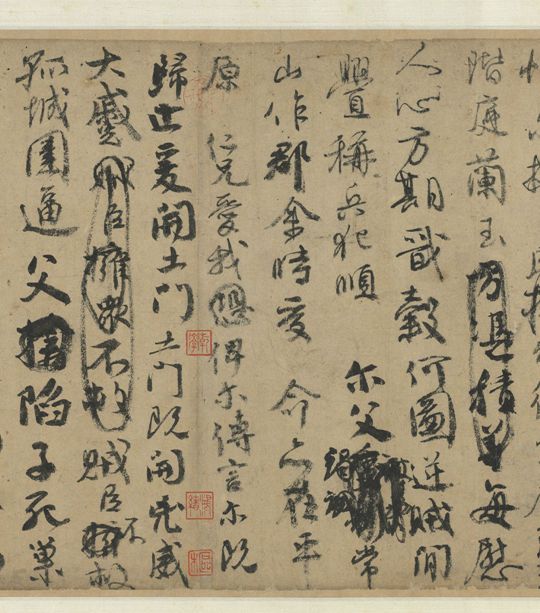 階庭蘭玉方憑積善每慰
人心方期戩穀何圖逆賊閒
釁稱兵犯順尔父竭誠常
山作郡余時受命亦在平
原仁兄愛我恐俾尔傳言尔既
歸止爰開土門土門既開凶威
大蹙賊臣擁衆不救賊臣不救
孤城圍逼父陷子死巢